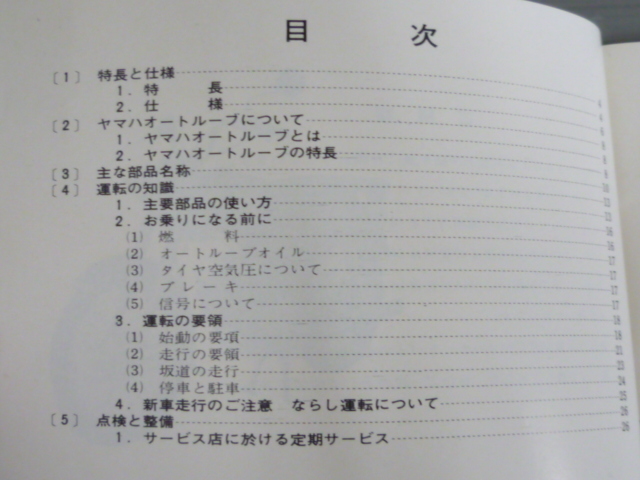 目 次
〔1〕 特長と仕様
1. 特 長
2. 仕 様
〔2〕 ヤマハオートルーブについて
1. ヤマハオートルーブとは
2. ヤマハオートルーブの特長
〔3〕 主な部品名称
〔4〕 運転の知識
1. 主要部品の使い方
2. お乗りになる前に
(1) 燃 料
(2) オートルーブオイル
(3) タイヤ空気圧について
(4) ブレーキ
(5) 信号について
3. 運転の要領
(1) 始動の要項
(2) 走行の要領
(3) 坂道の走行
(4) 停車と駐車
4. 新車走行のご注意 ならし運転について
〔5〕 点検と整備
1. サービス店に於ける定期サービス